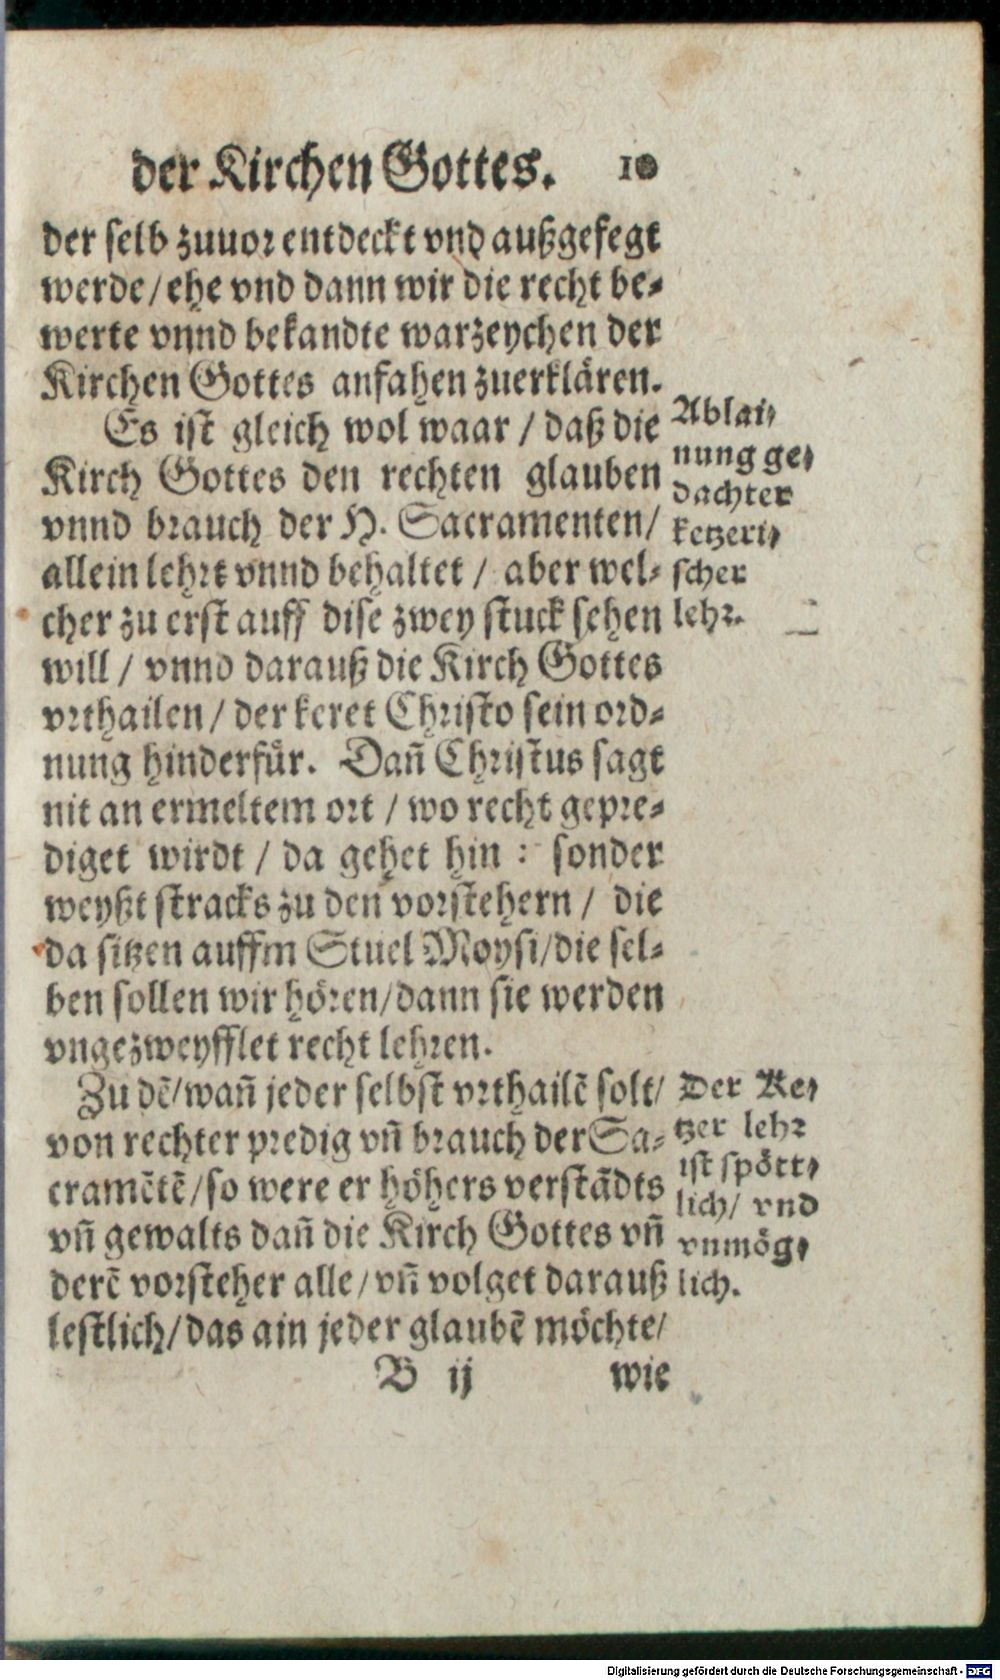 der Kirchen Gottes. 10
der selb zuuor entdeckt vnd außgefegt
werde/ehe vnd dann wir die recht be-
werte vnnd bekandte warzeychen der
Kirchen Gottes anfahen zuerklären.
Es ist gleich wol waar / daß die
Kirch Gottes den rechten glauben
vnnd brauch der H. Sacramenten/
allein lehrt vnnd behaltet / aber wel-
cher zu erst auff dise zwey stuck sehen
will / vnnd darauß die Kirch Gottes
vrthailen / der keret Christo sein ord-
nung hinderfür. Dañ Christus sagt
nit an ermeltem ort / wo recht gepre-
diget wirdt / da gehet hin : sonder
weyßt stracks zu den vorstehern / die
da sitzen auffm Stuel Moysi/die sel-
ben sollen wir hören/dann sie werden
vngezweyfflet recht lehren.
Zu dẽ/wañ jeder selbst vrthailẽ solt/
von rechter predig vñ brauch der Sa-
cramẽtẽ/so were er höhers verstãdts
vñ gewalts dañ die Kirch Gottes vñ
derẽ vorsteher alle/vñ volget darauß
lestlich/das ain jeder glaubẽ möchte/
B ij wie
Ablai-
nung ge-
dachter
ketzeri-
scher
lehr.
Der Ke-
tzer lehr
ist spött-
lich/ vnd
vnmög-
lich.
Digitalisierung gefördert durch die Deutsche Forschungsgemeinschaft - DFG